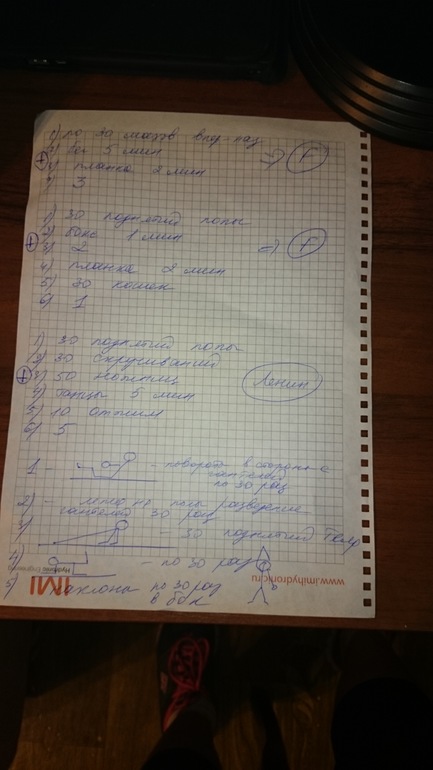 1) по 30 махов впд наз
2) бег 5 мин
+ 3) планка 2 мин => F
4) 3
1) 30 поднятий попы
2) бокс 1 мин
+ 3) 2 => F
4) планка 2 мин
5) 30 кошек
6) 1
1) 30 поднятий попы
2) 30 скручиваний
+ 3) 50 ножниц Ленин
4) танцы 5 мин
5) 10 отжим
6) 5
1 - - повороты в стороны с
гантелей
по 30 раз
2) - лежа на полу разведение
гантелей 30 раз
3) - 30 поднятий
4) - по 30 раз
5) наклоны по 30 раз
в бок
IMI
Hydronic Engineering
www.imihydronic.ru